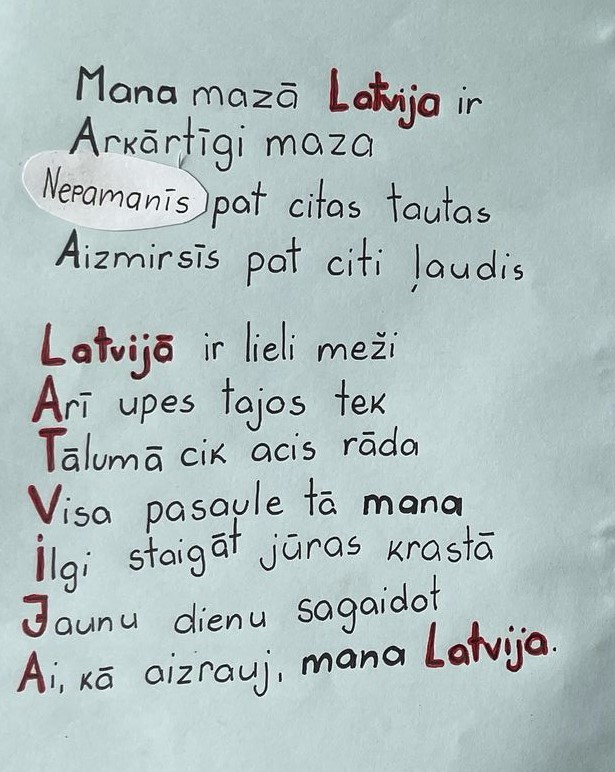 Mana mazā Latvija ir
Arkārtīgi maza
Nepamanīs pat citas tautas
Aizmirsīs pat citi ļaudis
Latvijā ir lieli meži
Arī upes tajos tek
Tālumā cik acis rāda
Visa pasaule tā mana
Ilgi staigāt jūras krastā
Jaunu dienu sagaidot
Ai, kā aizrauj, mana Latvija.